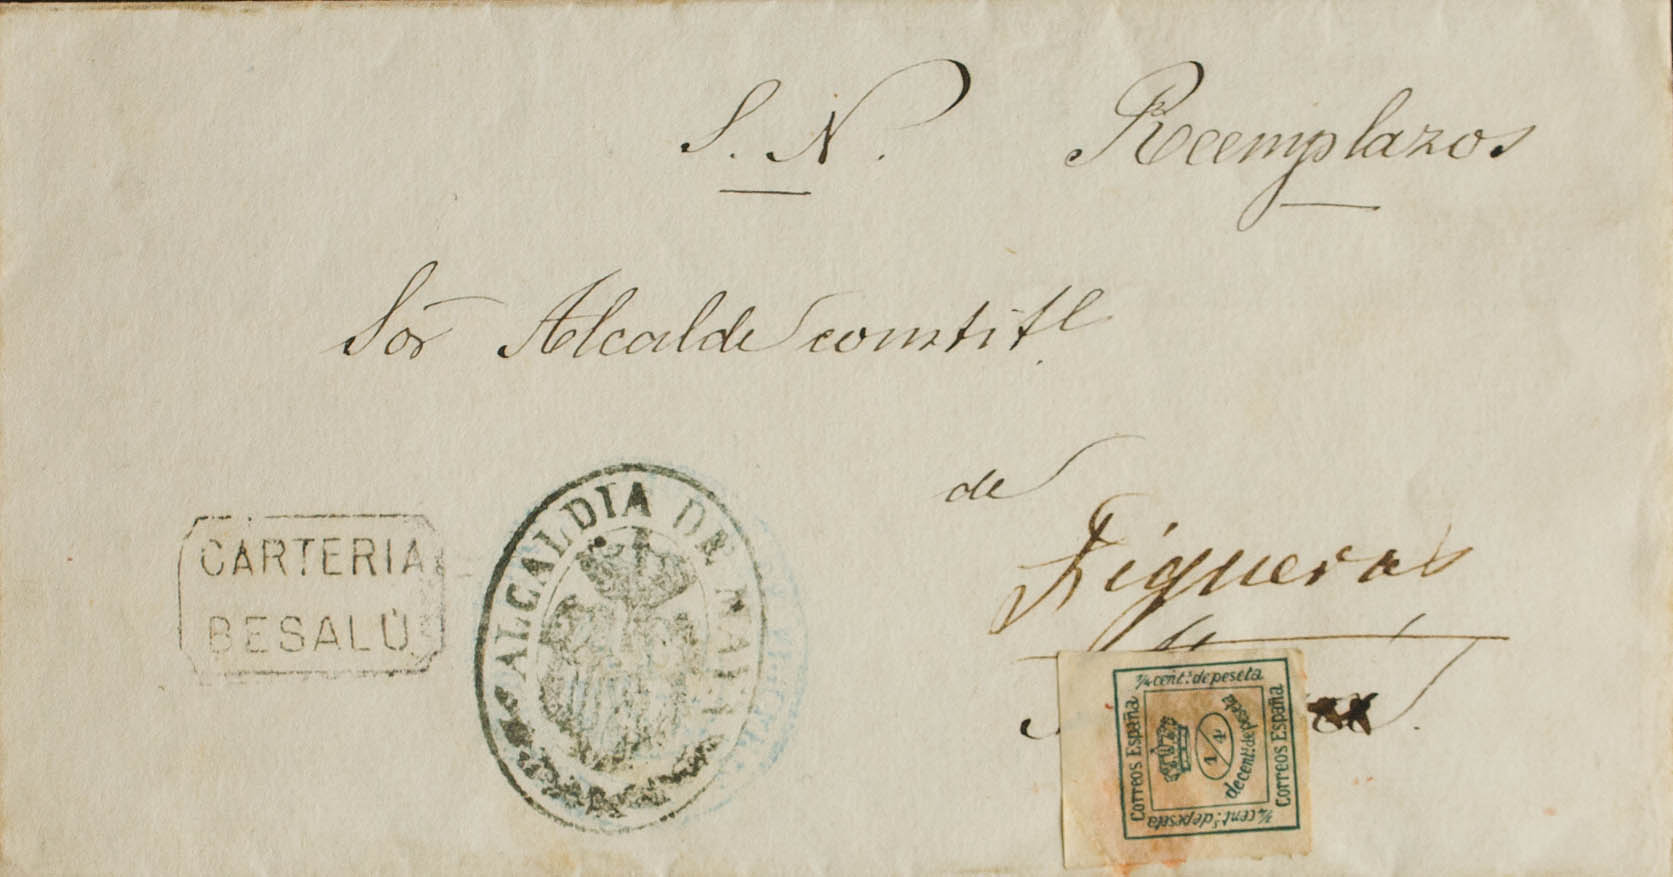 S. N. Reemplazos
Sor Alcalde constitl
de
Figueras
CARTERIA
BESALÚ
ALCALDIA DE
¼ cents de peseta
Correos España
1/4
de cent. de peseta
Correos España
¼ cents de peseta